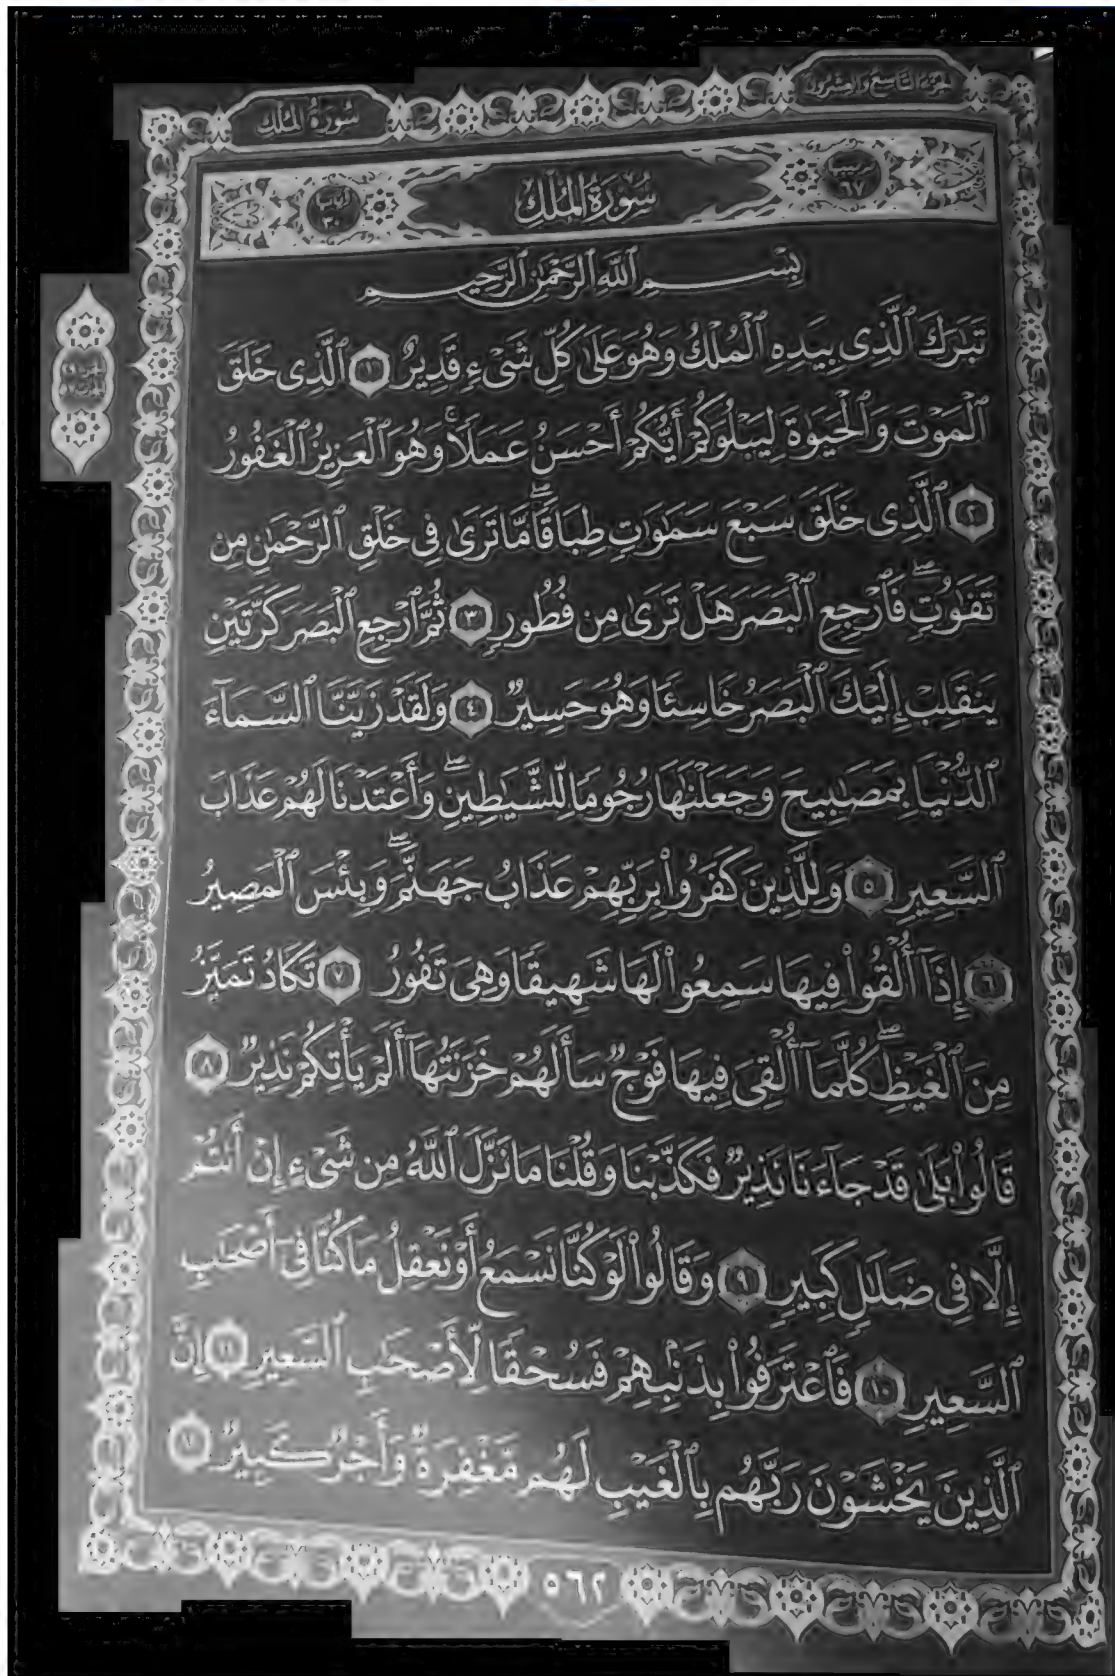 الجزء التاسع والعشرون
سُورَةُ المُلْكِ
ترتيبها ٦٧
سُورَةُ المُلْكِ
آياتها ٣٠
بِسْمِ ٱللَّهِ ٱلرَّحْمَٰنِ ٱلرَّحِيمِ
تَبَٰرَكَ ٱلَّذِى بِيَدِهِ ٱلْمُلْكُ وَهُوَ عَلَىٰ كُلِّ شَىْءٍ قَدِيرٌ ١ ٱلَّذِى خَلَقَ
ٱلْمَوْتَ وَٱلْحَيَوٰةَ لِيَبْلُوَكُمْ أَيُّكُمْ أَحْسَنُ عَمَلًا ۚ وَهُوَ ٱلْعَزِيزُ ٱلْغَفُورُ
٢ ٱلَّذِى خَلَقَ سَبْعَ سَمَٰوَٰتٍ طِبَاقًا ۖ مَّا تَرَىٰ فِى خَلْقِ ٱلرَّحْمَٰنِ مِن
تَفَٰوُتٍ ۖ فَٱرْجِعِ ٱلْبَصَرَ هَلْ تَرَىٰ مِن فُطُورٍ ٣ ثُمَّ ٱرْجِعِ ٱلْبَصَرَ كَرَّتَيْنِ
يَنقَلِبْ إِلَيْكَ ٱلْبَصَرُ خَاسِئًا وَهُوَ حَسِيرٌ ٤ وَلَقَدْ زَيَّنَّا ٱلسَّمَآءَ
ٱلدُّنْيَا بِمَصَٰبِيحَ وَجَعَلْنَٰهَا رُجُومًا لِّلشَّيَٰطِينِ ۖ وَأَعْتَدْنَا لَهُمْ عَذَابَ
ٱلسَّعِيرِ ٥ وَلِلَّذِينَ كَفَرُوا۟ بِرَبِّهِمْ عَذَابُ جَهَنَّمَ ۖ وَبِئْسَ ٱلْمَصِيرُ
٦ إِذَآ أُلْقُوا۟ فِيهَا سَمِعُوا۟ لَهَا شَهِيقًا وَهِىَ تَفُورُ ٧ تَكَادُ تَمَيَّزُ
مِنَ ٱلْغَيْظِ ۖ كُلَّمَآ أُلْقِىَ فِيهَا فَوْجٌ سَأَلَهُمْ خَزَنَتُهَآ أَلَمْ يَأْتِكُمْ نَذِيرٌ ٨
قَالُوا۟ بَلَىٰ قَدْ جَآءَنَا نَذِيرٌ فَكَذَّبْنَا وَقُلْنَا مَا نَزَّلَ ٱللَّهُ مِن شَىْءٍ إِنْ أَنتُمْ
إِلَّا فِى ضَلَٰلٍ كَبِيرٍ ٩ وَقَالُوا۟ لَوْ كُنَّا نَسْمَعُ أَوْ نَعْقِلُ مَا كُنَّا فِىٓ أَصْحَٰبِ
ٱلسَّعِيرِ ١٠ فَٱعْتَرَفُوا۟ بِذَنۢبِهِمْ فَسُحْقًا لِّأَصْحَٰبِ ٱلسَّعِيرِ ١١ إِنَّ
ٱلَّذِينَ يَخْشَوْنَ رَبَّهُم بِٱلْغَيْبِ لَهُم مَّغْفِرَةٌ وَأَجْرٌ كَبِيرٌ
٥٦٢